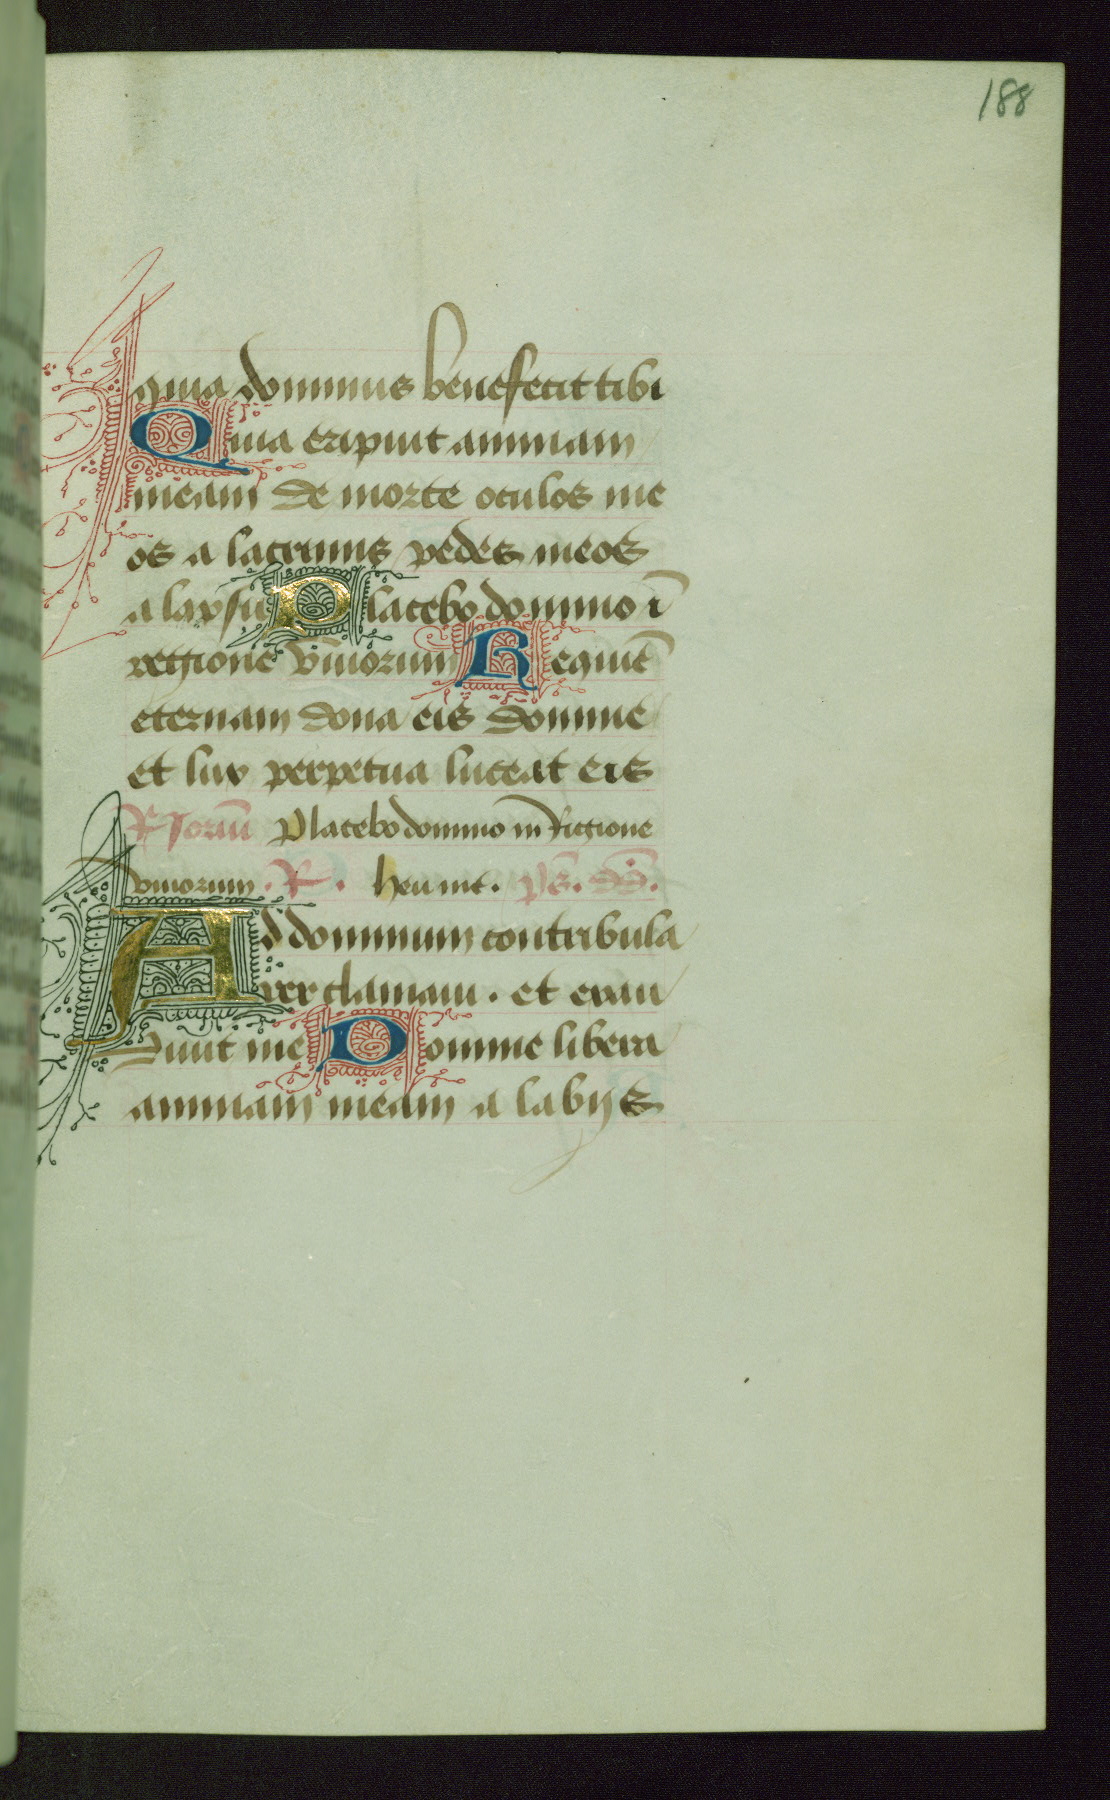 188
quia dominus benefecit tibi
Quia eripuit animam
meam de morte oculos me
os a lacrimis pedes meos
a lapsu Placebo domino ī
regione viuorum Requiē
eternam dona eis domine
et lux perpetua luceat eis
Placebo domino in Regione
viuorum . R . heu mt . ps̄ . dd̄ .
Ad dominum contribula
rer clamaui . et exau
diuit me Domine libera
animam meam a labijs